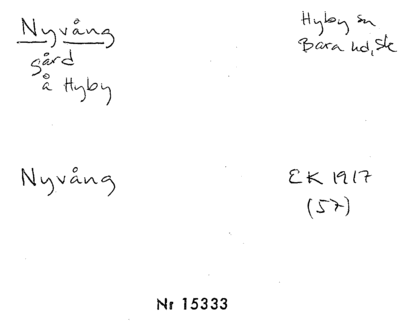 Nyvång
gård
å Hyby
Hyby sn
Bara hd, Sk
Nyvång
EK 1917
(57)
Nr 15333